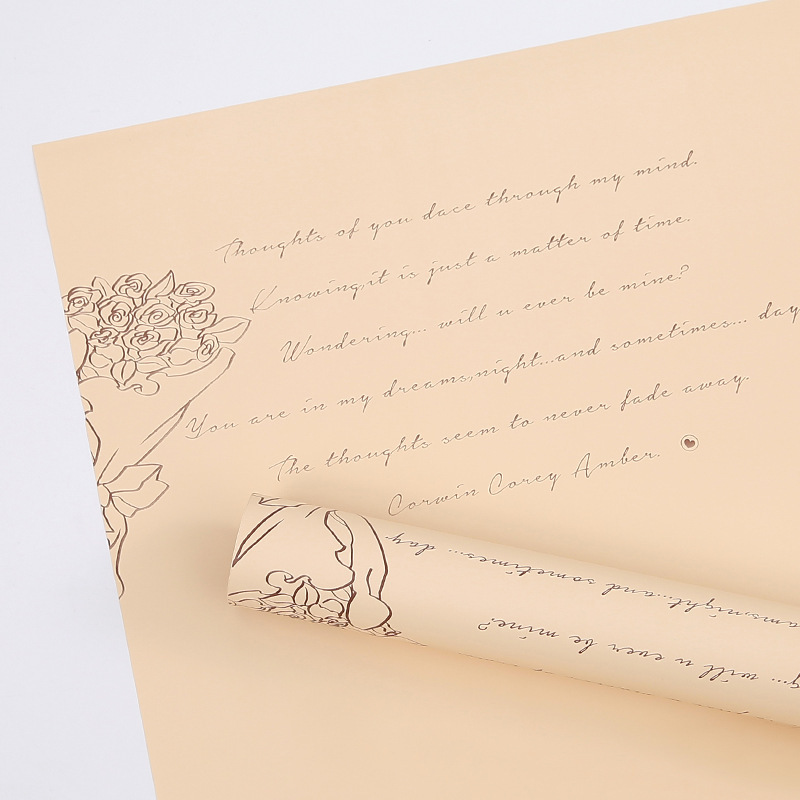 Thoughts of you dace through my mind.
Knowing,it is just a matter of time.
Wondering... will u ever be mine?
You are in my dreams,night...and sometimes... day
The thoughts seem to never fade away.
Corwin Corey Amber.
ams,night...and sometimes... day
g... will u ever be mine?